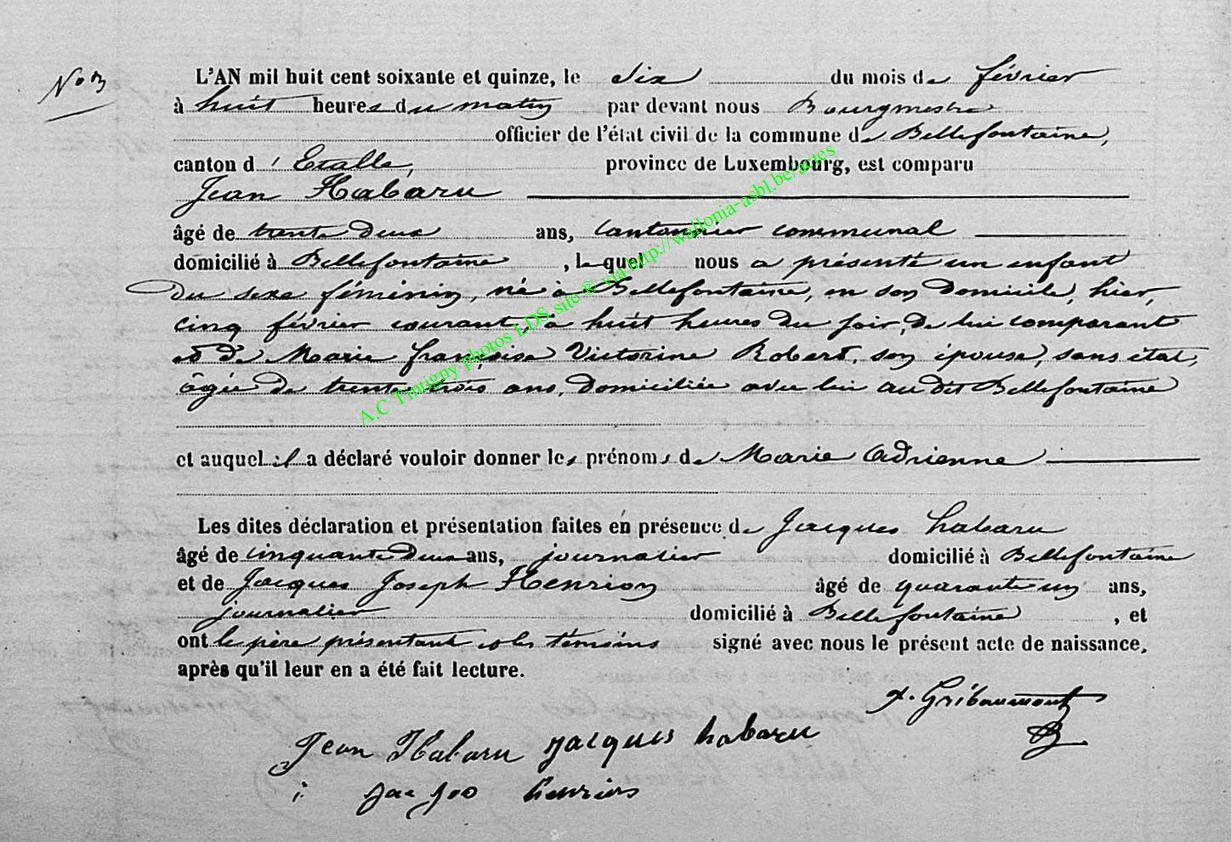 No 3
L'AN mil huit cent soixante et quinze, le six du mois de février
à huit heures du matin par devant nous Bourgmestre
officier de l'état civil de la commune de Bellefontaine,
canton d'Etalle, province de Luxembourg, est comparu
Jean Habaru
âgé de trente deux ans, cantonnier communal
domicilié à Bellefontaine, lequel nous a présenté un enfant
du sexe féminin, né à Bellefontaine, en son domicile, hier,
cinq février courant, à huit heures du soir, de lui comparant
et de Marie françoise Victorine Robert, son épouse, sans état,
âgée de trente trois ans, domiciliée avec lui au dit Bellefontaine
et auquel il a déclaré vouloir donner les prénoms de Marie Adrienne
Les dites déclaration et présentation faites en présence de Jacques habaru
âgé de cinquante deux ans, journalier domicilié à Bellefontaine
et de Jacques Joseph Henrion âgé de quarante un ans,
journalier domicilié à Bellefontaine, et
ont le père présentant et les témoins signé avec nous le présent acte de naissance,
après qu'il leur en a été fait lecture.
Gribaumont
Jean Habaru jacques habaru
jac jos henrion
A.C Tintigny photos LDS site @ via http://wallonia-asbl.be/actes